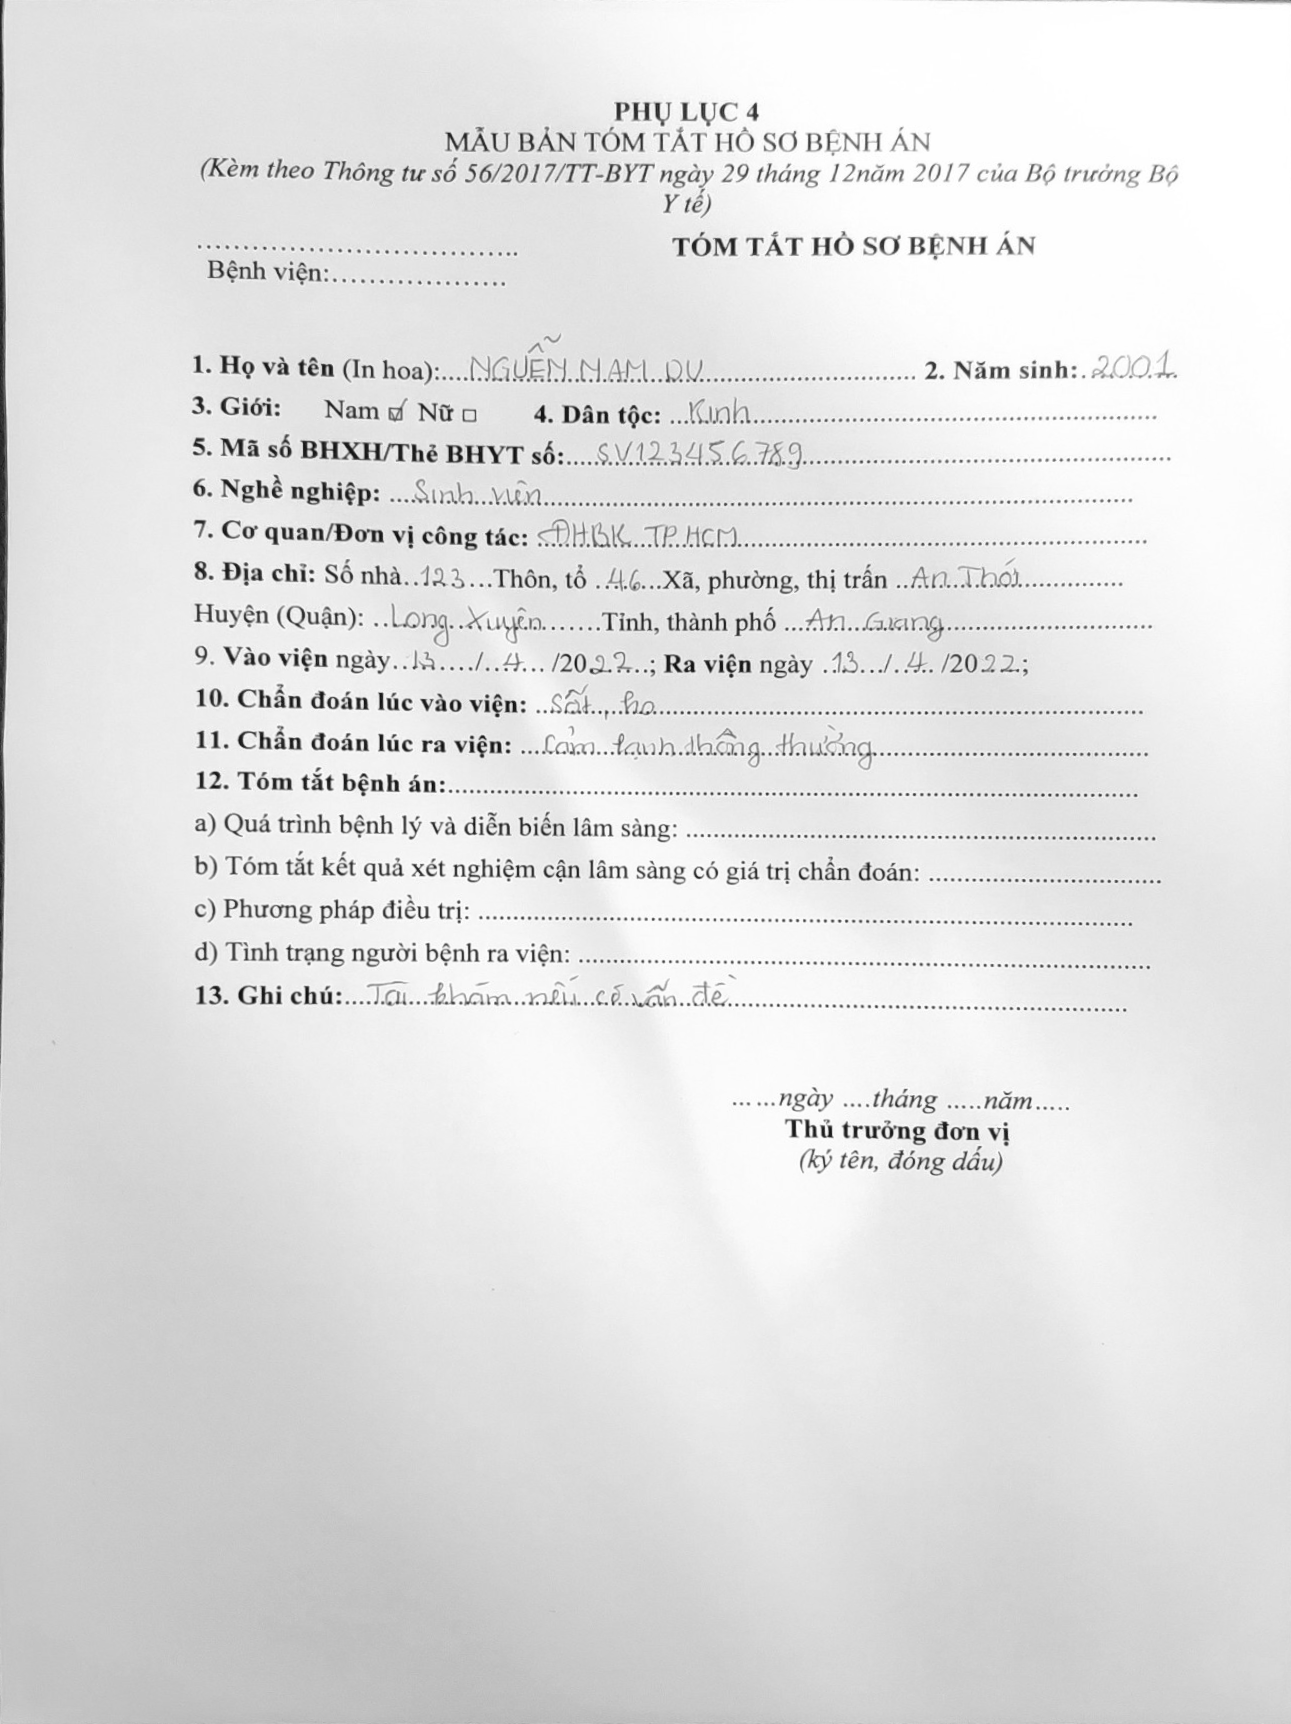 PHỤ LỤC 4
MẪU BẢN TÓM TẮT HỒ SƠ BỆNH ÁN
(Kèm theo Thông tư số 56/2017/TT-BYT ngày 29 tháng 12năm 2017 của Bộ trưởng Bộ
Y tế)
................................... TÓM TẮT HỒ SƠ BỆNH ÁN
Bệnh viện:...................
1. Họ và tên (In hoa):....NGUỄN NAM DU.................... 2. Năm sinh:.2001.
3. Giới: Nam ☑ Nữ □ 4. Dân tộc: ...Kinh....................
5. Mã số BHXH/Thẻ BHYT số:....SV123456789....................
6. Nghề nghiệp: ...Sinh viên....................
7. Cơ quan/Đơn vị công tác: ĐHBK TP HCM....................
8. Địa chỉ: Số nhà..123...Thôn, tổ .46...Xã, phường, thị trấn ..An Thới.............
Huyện (Quận): ..Long Xuyên.......Tỉnh, thành phố ...An Giang....................
9. Vào viện ngày..13..../..4... /2022..; Ra viện ngày ..13.../..4.. /2022.;
10. Chẩn đoán lúc vào viện: ..Sốt, ho....................
11. Chẩn đoán lúc ra viện: ...Cảm lạnh thông thường....................
12. Tóm tắt bệnh án:....................
a) Quá trình bệnh lý và diễn biến lâm sàng: ....................
b) Tóm tắt kết quả xét nghiệm cận lâm sàng có giá trị chẩn đoán: ....................
c) Phương pháp điều trị: ....................
d) Tình trạng người bệnh ra viện: ....................
13. Ghi chú:....Tái khám nếu có vấn đề....................
......ngày ....tháng .....năm.....
Thủ trưởng đơn vị
(ký tên, đóng dấu)